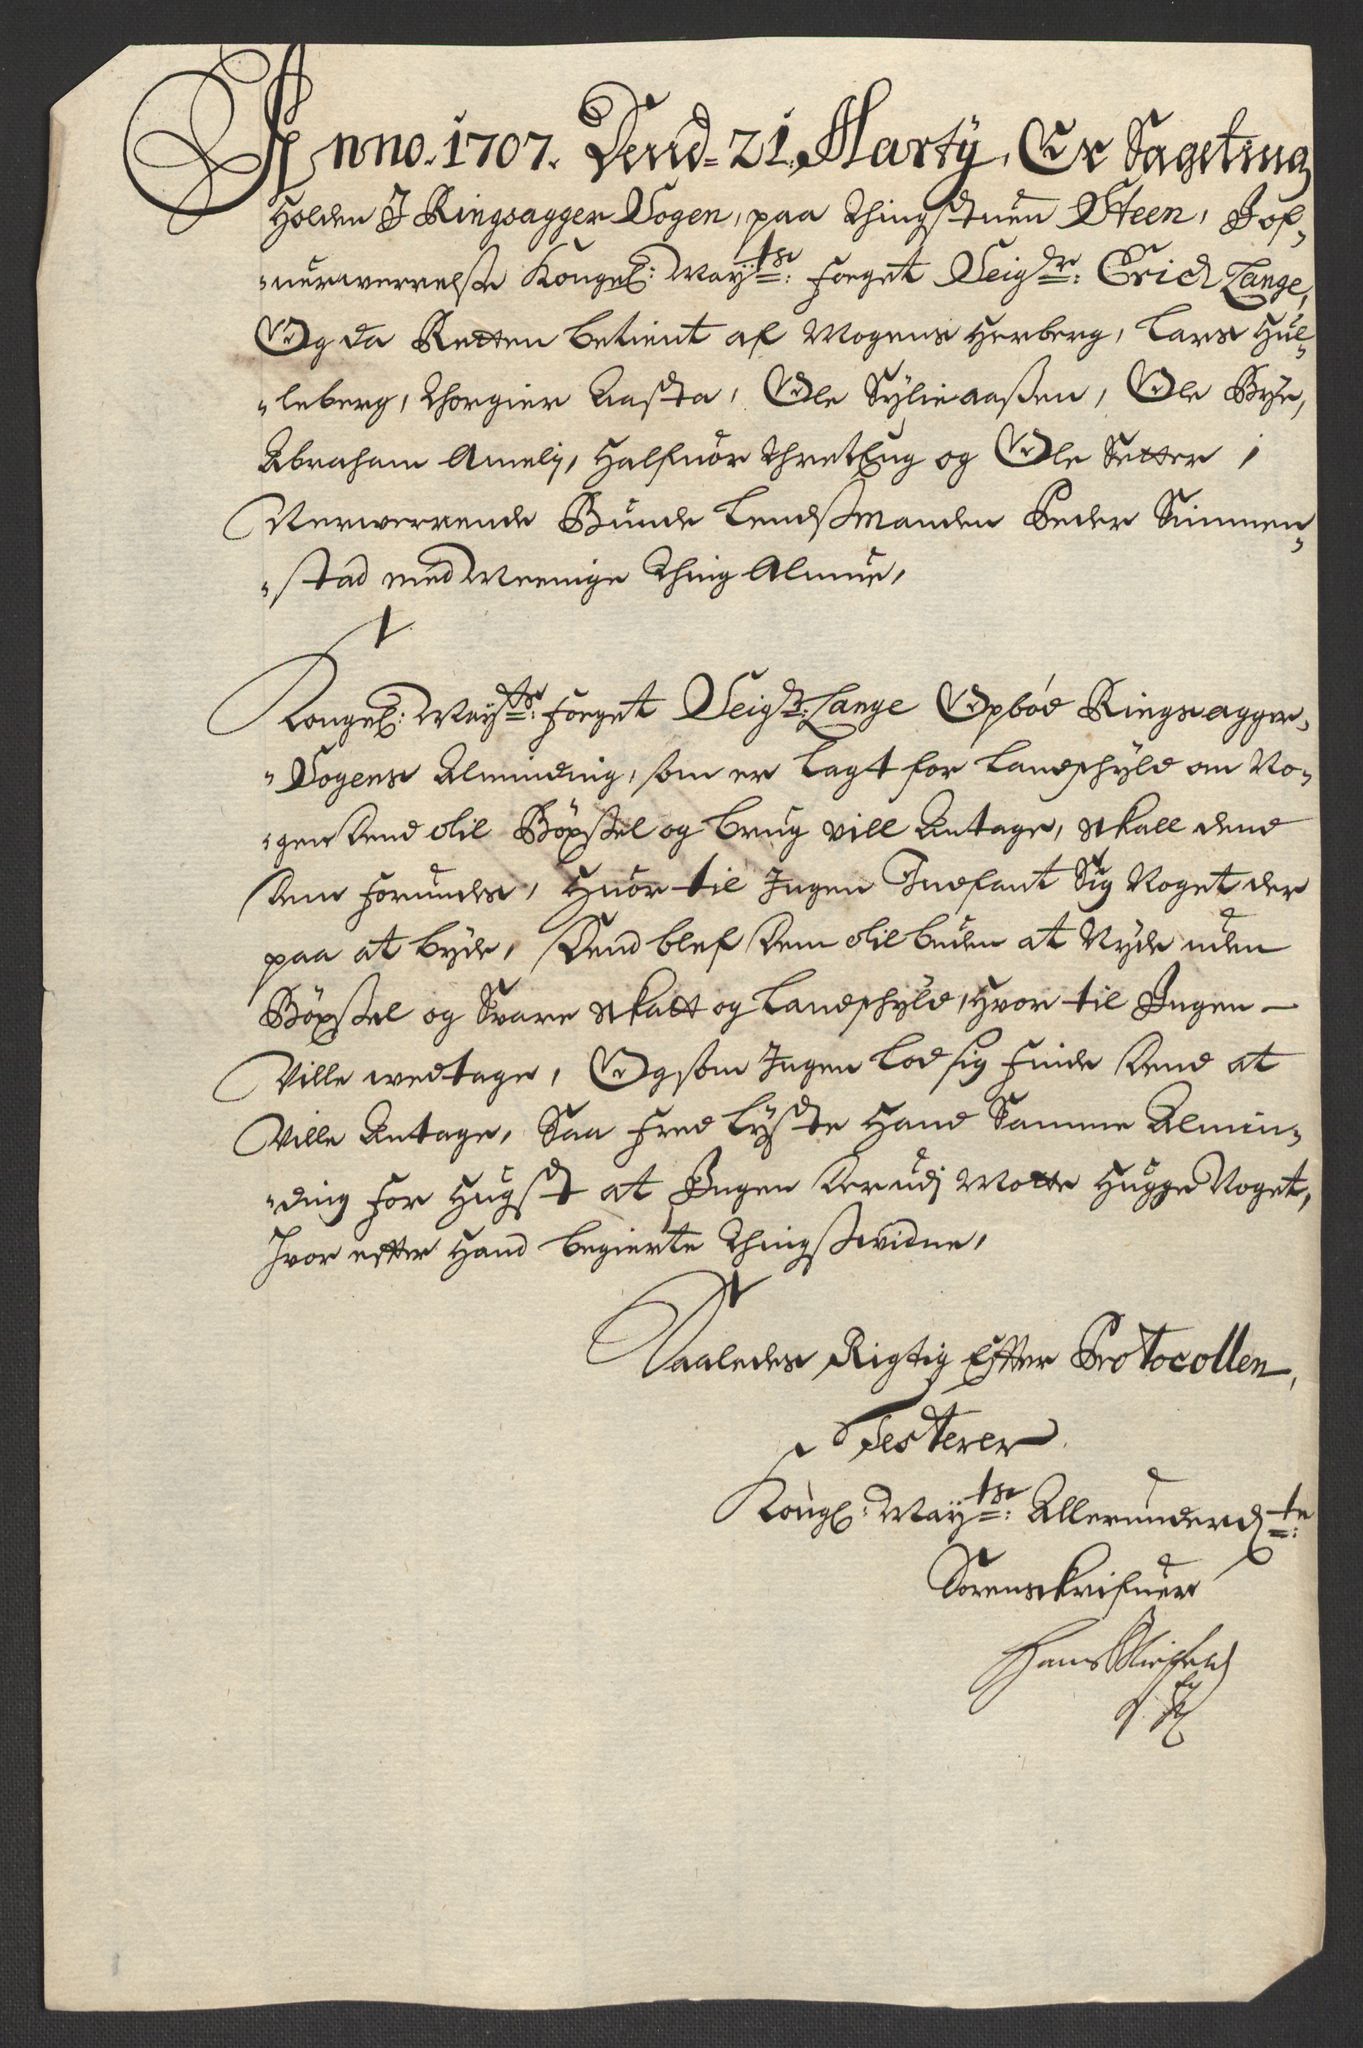 Anno. 1707. Dend= 21 Marty, Er Sageting
Holden J Ringsagger Sogen, paa Thingstuen Steen, J of-
-uerwerrelse Kongel: May:ts: Foeget Seig:r: Erich Lange,
Og da Retten betient af Mogens Herberg, Lars Hul-
-leberg, Thorgier Aasta, Ole Sylieaasen, Ole Bye,
Abraham Amely, Halfuor Thretteug og Ole Setter,
Nerwerrende Bunde Lendsmanden Peder Simmen-
-stad med Meenige Thing Almue,
Kongel: May:ts: Foeget Seig:r: Lange Opbød Ringsagger-
-Sogens Alminding, som er lagt for Landschyld om No-
-gen dend til Bøxsel og brug vill Antage, skall dend
dem forundes, Huor til Ingen Indfant Sig Noget der
paa at byde, dend blef dem tilbuden at Nyde uden
Bøxsel og Svare skatt og Landschyld, Hvor til Ingen -
Ville wedtage, Og som Ingen lod sig finde dend at
Ville Antage, Saa fred lyste Hand Samme Almin-
-ding for Hugst at Ingen derudj Motte Hugge Noget,
Hvor efter Hand begierte Thingswidne,
Saaledes Rigtig Efter Protocollen,
Testerer
Kongl: May:ts: Allerunderd:te:
Sorenskrifuer
Hans